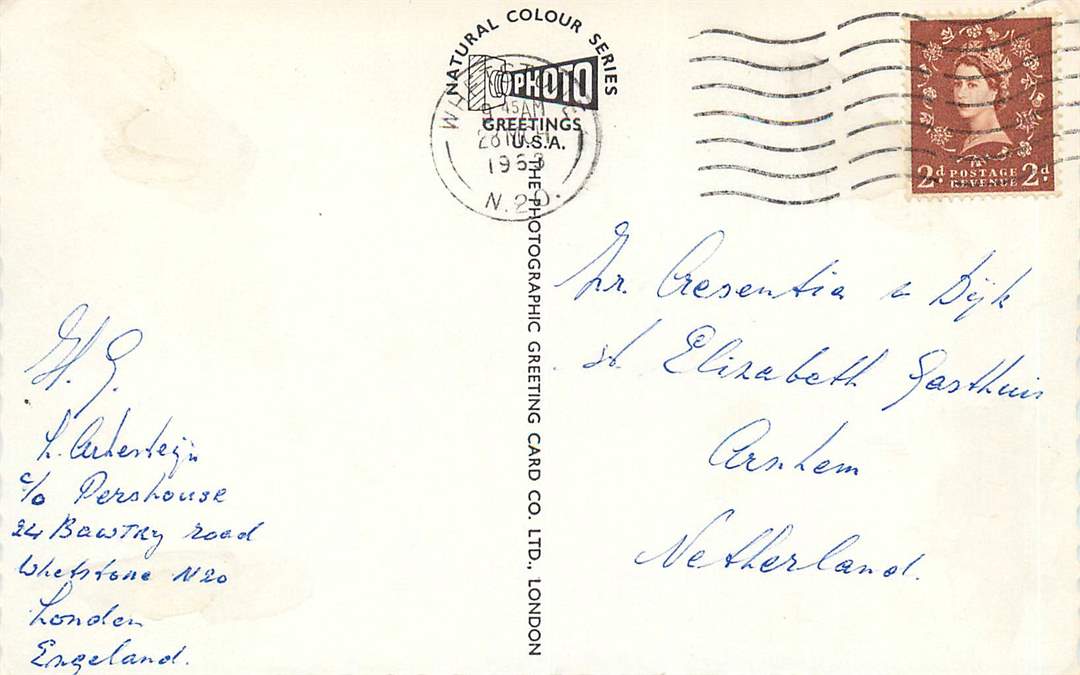 NATURAL COLOUR SERIES
PHOTO
GREETINGS
U.S.A.
THE PHOTOGRAPHIC GREETING CARD CO. LTD., LONDON
WHETSTONE
9 45AM
28 MCH
1953
N.20.
2d POSTAGE REVENUE 2d
Zr. Cresentia v Dijk
st. Elizabeth Gasthuis
Arnhem
Netherland.
H. G.
c/o Pershouse
24 Bawtry road
Whetstone N20
London
Engeland.